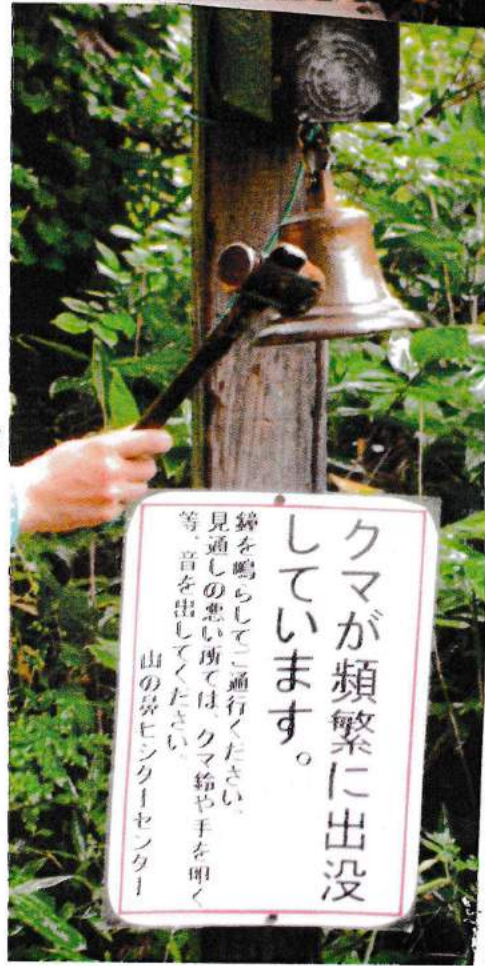 クマが頻繁に出没
しています。
鐘を鳴らしてご通行ください、
見通しの悪い所では、クマ鈴や手を叩く
等、音を出してください、
山の鼻ビジターセンター